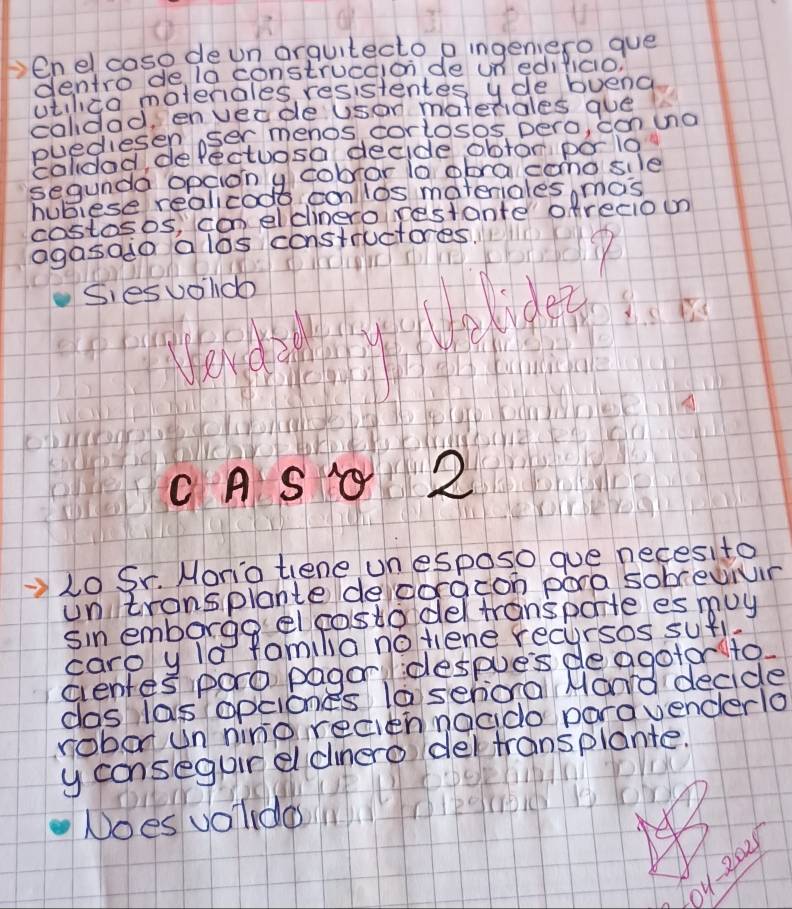 → En el caso de un arquitecto o ingeniero que
dentro de la construcción de un edificio.
utiliza materiales resistentes y de buena
calidad, en vez de usar materiales que
puediesen ser menos cortosos pero, con una
calidad defectuosa decide obtar por la
segunda opción y cobrar la obra como si le
hubiese realicado con los materiales mas
costosos, con el dinero restante ofrecio un
agasajo a los constructores.
• Si es valido
Verdad y Validez ?
CASO 2
→ La Sr. Maria tiene un esposo que necesita
un transplante de coracon para sobrevivir
sin embargo el costo del transporte es muy
caro y la familia no tiene recursos sufi-
cientes para pagar despues de agotar to-
das las opciones la señora Maria decide
robar un niño recien nacido para venderlo
y conseguir el dinero del transplante.
• No es valido
04-2025